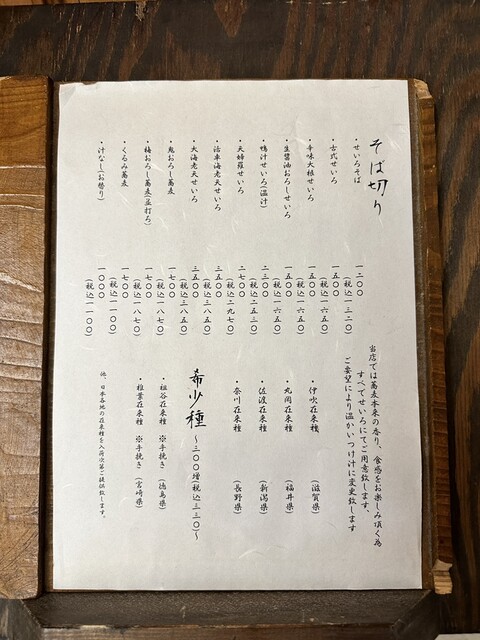 そば切り
・せいろそば
一二〇〇
(税込一三二〇)
・古式せいろ
一五〇〇
(税込一六五〇)
・辛味大根せいろ
一五〇〇
(税込一六五〇)
・生醤油おろしせいろ
一五〇〇
(税込一六五〇)
・鴨汁せいろ(温汁)
二三〇〇
(税込二五三〇)
・天婦羅せいろ
二七〇〇
(税込二九七〇)
・活車海老天せいろ
三五〇〇
(税込三八五〇)
・大海老天せいろ
三五〇〇
(税込三八五〇)
・鬼おろし蕎麦
一七〇〇
(税込一八七〇)
・梅おろし蕎麦(並打ち)
一七〇〇
(税込一八七〇)
・くるみ蕎麦
一七〇〇
(税込一八七〇)
・汁なし(お替り)
一〇〇〇
(税込一一〇〇)
当店では蕎麦本来の香り、食感をお楽しみ頂く為
すべてせいろにてご用意致します、
ご要望により温かいつけ汁に変更致します
・伊吹在来種 (滋賀県)
・丸岡在来種 (福井県)
・佐渡在来種 (新潟県)
・奈川在来種 (長野県)
希少種 ～三〇〇増税込三三〇～
・祖谷在来種 ※手挽き (徳島県)
・椎葉在来種 ※手挽き (宮崎県)
他、日本各地の在来種を入荷次第ご提供致します。